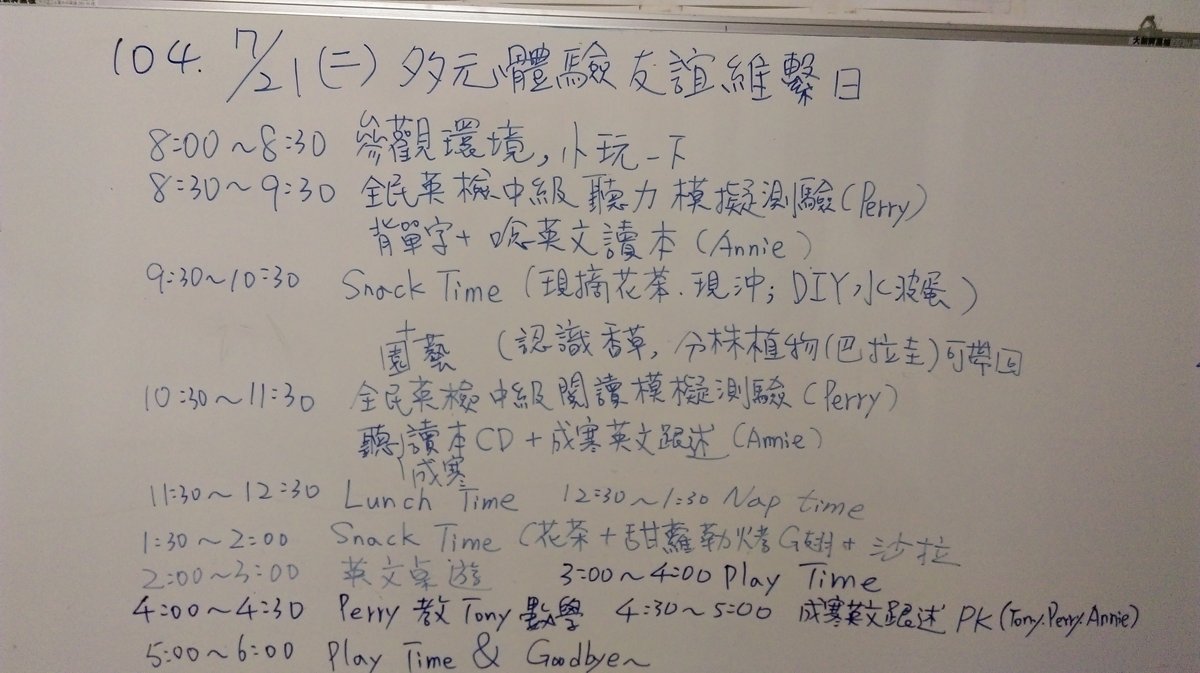 104. 7/21(二) 多元體驗友誼維繫日
8:00~8:30 參觀環境,小玩一下
8:30~9:30 全民英檢中級聽力模擬測驗(Perry)
背單字+唸英文讀本(Annie)
9:30~10:30 Snack Time (現摘花茶.現沖; DIY水波蛋)
+
園藝 (認識香草,分株植物(巴拉圭)可帶回
10:30~11:30 全民英檢中級閱讀模擬測驗(Perry)
聽讀本CD+成寒英文跟述(Annie)
成寒
11:30~12:30 Lunch Time 12:30~1:30 Nap time
1:30~2:00 Snack Time (花茶+甜蘿勒烤G翅+沙拉
2:00~3:00 英文桌遊 3:00~4:00 Play Time
4:00~4:30 Perry教Tony數學 4:30~5:00 成寒英文跟述PK(Tony.Perry.Annie)
5:00~6:00 Play Time & Goodbye~